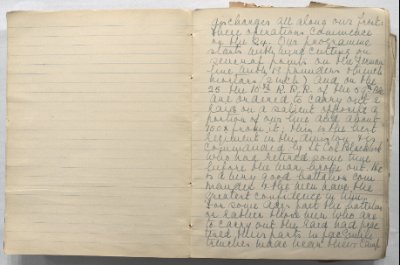 discharges all along our front
these operations commence
on the 24. Our programme
starts with wire cutting on
several points on the German
line with 18 pounders & trench
mortars (2 inch) and on the
25 the 10th R.B.R. of the 59th Bde
are ordered to carry out a
raid on a salient opposite a
portion of our line and about
from it, this is the best
Regiment in the division & is
commanded by Lt Col Blackburn
who had retired some time
before the war broke out. He
is a very good battalion com
mander & the men have the
greatest confidence in him.
For some days past the battalion
or rather those men who are
to carry out the raid had prac
tised their parts in facsimile
trenches made near their camp